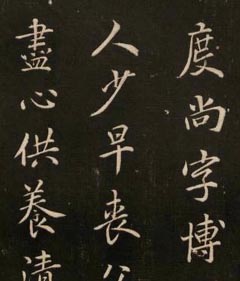 度尚字博
人少早喪父
盡心供養清